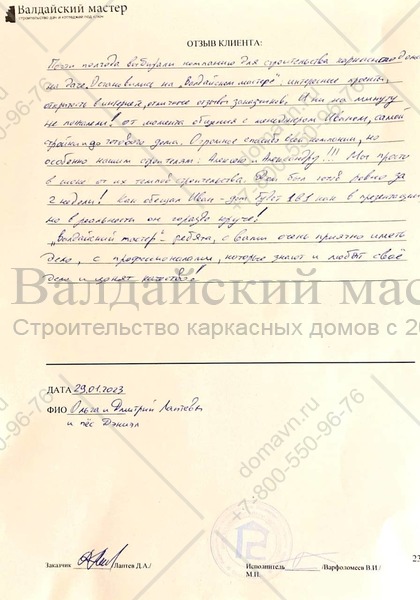 Валдайский мастер
строительство дач и коттеджей под ключ
ОТЗЫВ КЛИЕНТА:
Почти полгода выбирали компанию для строительства каркасного дома
на даче. Остановились на „Валдайском мастере“: интересные проекты,
открыто в интернет, отличные отзывы заказчиков. И ни на минуту
не пожалели! от момента общения с менеджером Иваном, самой
до готового дома. Огромное спасибо всей компании, но
особенно нашим строителям: Алексею и Александру!!! Мы просто
в шоке от их темпов строительства. Дом был готов ровно за
2 недели! Как обещал Иван - дом будет 1в1 как в презентации
но в реальности он гораздо круче!
„Валдайский мастер“ - ребята, с вами очень приятно иметь
дело, с профессионалами, которые знают и любят своё
дело и ценят качество!
Валдайский мас
Строительство каркасных домов с 20
ДАТА 29.01.2023
ФИО Ольга и Дмитрий Лаптевы
и пёс Дэниэл
domavn.ru
+7-800-550-96-76
Заказчик /Лаптев Д.А./
Исполнитель /Варфоломеев В.И./
М.П.
23